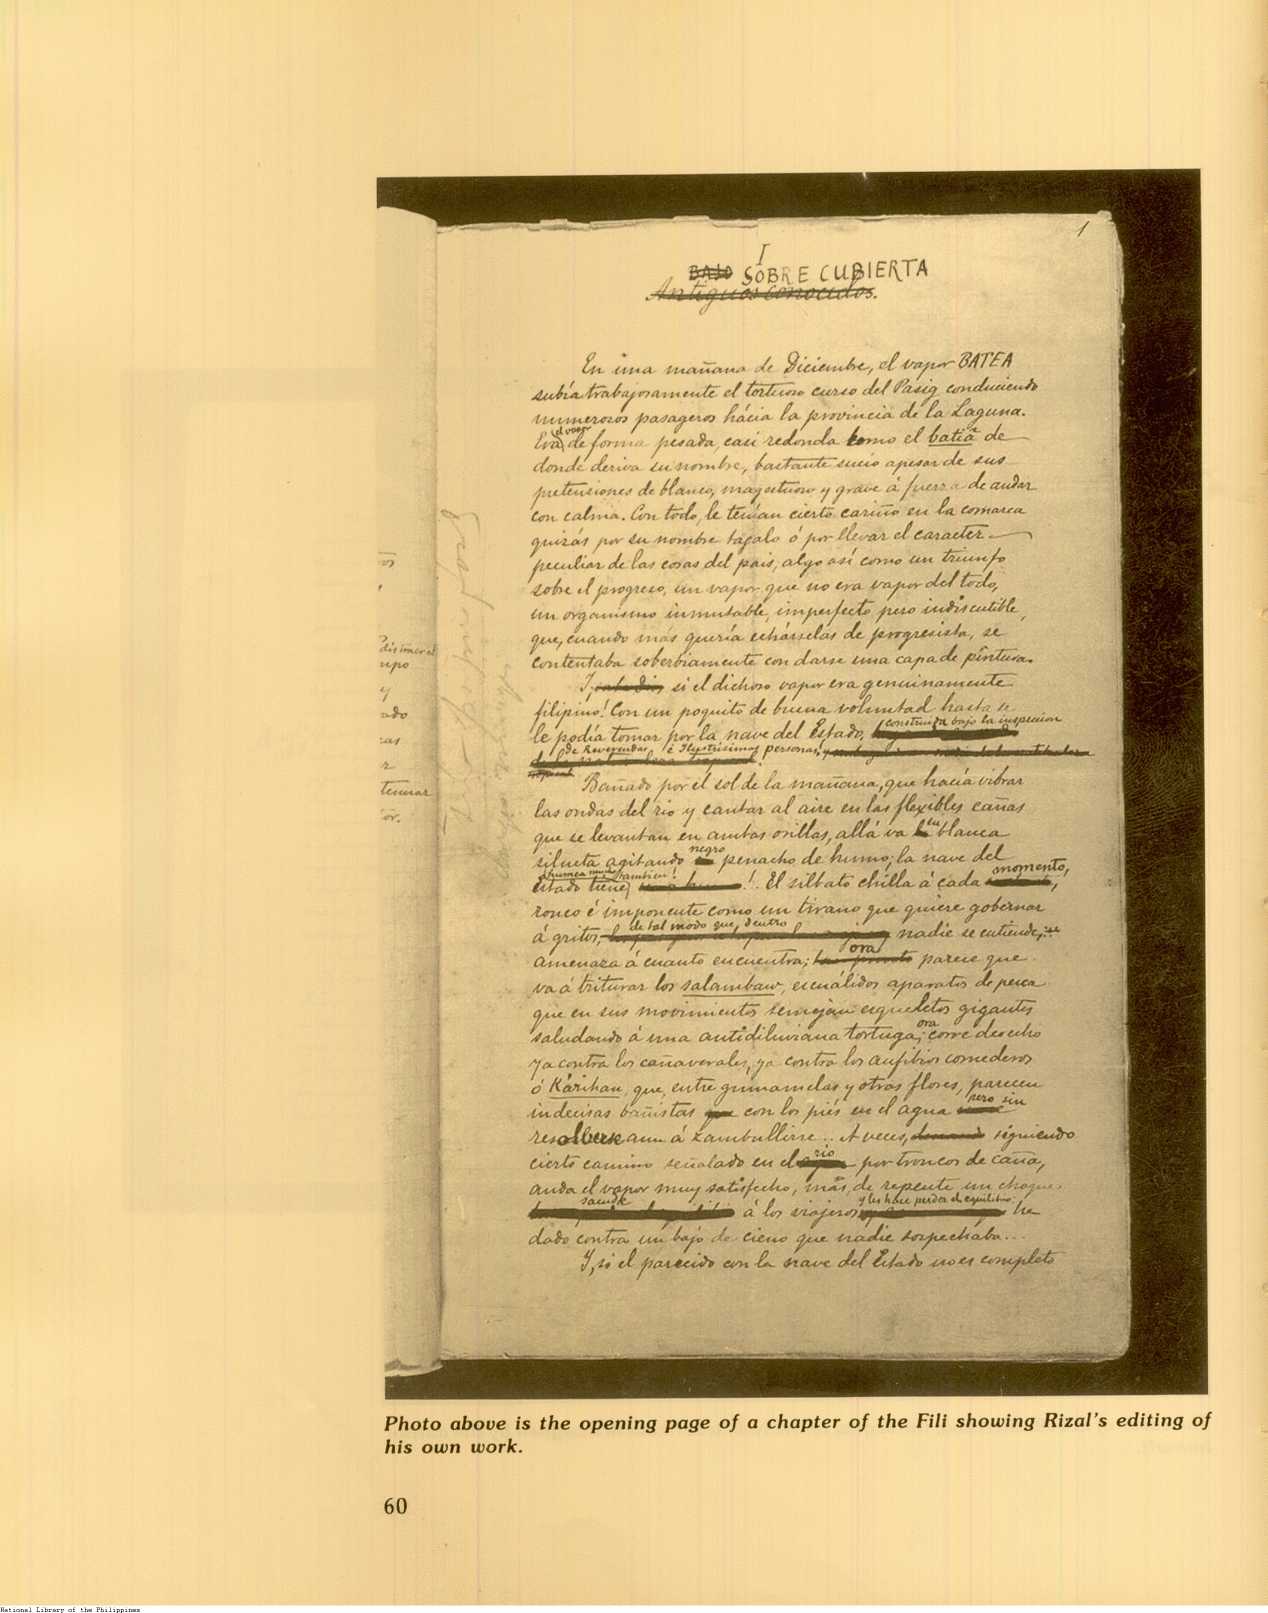 1
I
BAJO SOBRE CUBIERTA
Antiguos conocidos.
En una mañana de Diciembre, el vapor BATEA
subía trabajosamente el tortuoso curso del Pasig conduciendo
numerosos pasageros hácia la provincia de la Laguna.
el vapor
Era de forma pesada, casi redonda como el batiâ de
donde deriva su nombre, bastante sucio apesar de sus
pretensiones de blanco, magestuoso y grave á fuerza de andar
con calma. Con todo, le tenían cierto cariño en la comarca
quizas por su nombre tagalo ó por llevar el caracter
peculiar de las cosas del pais, algo así como un triunfo
sobre el progreso, un vapor que no era vapor del todo,
un organismo inmutable, imperfecto pero indiscutible,
que, cuando más quería echárselas de progresista, se
contentaba soberbiamente con darse una capa de pintura.
Y, si el dichoso vapor era genuinamente
filipino! Con un poquito de buena voluntad hasta se
le podía tomar por la nave del Estado,
construida bajo la inspeccion
de Reverendas é Ilustrísimas personas!
Bañado por el sol de la mañana, que hacía vibrar
las ondas del rio y cantar al aire en las flexibles cañas
que se levantan en ambas orillas, allá va su blanca
negro
silueta agitando penacho de humo; la nave del
¡humea mucho tambien!
Estado tiene, !. El silbato chilla á cada momento,
ronco é imponente como un tirano que quiere gobernar
de tal modo que, dentro
á gritos, nadie se entiende;
amenaza á cuanto encuentra; ora parece que
va á triturar los salambaw, escuálidos aparatos de pesca
que en sus movimientos semejan esqueletos gigantes
ora
saludando á una antidiluviana tortuga; corre derecho
ya contra los cañaverales, ya contra los anfibios comederos
ó Kárihan, que, entre gumamelas y otras flores, parecen
pero sin
indecisas bañistas que con los piés en el agua
resolverse aun á zambullirse.. A veces, siguiendo
rio
cierto camino señalado en el por troncos de caña,
anda el vapor muy satisfecho, más, de repente un choque
sacude
y les hace perder el equilibrio:
á los viajeros ha
dado contra un bajo de cieno que nadie sospechaba...
Y, si el parecido con la nave del Estado no es completo
Photo above is the opening page of a chapter of the Fili showing Rizal's editing of
his own work.
60
National Library of the Philippines